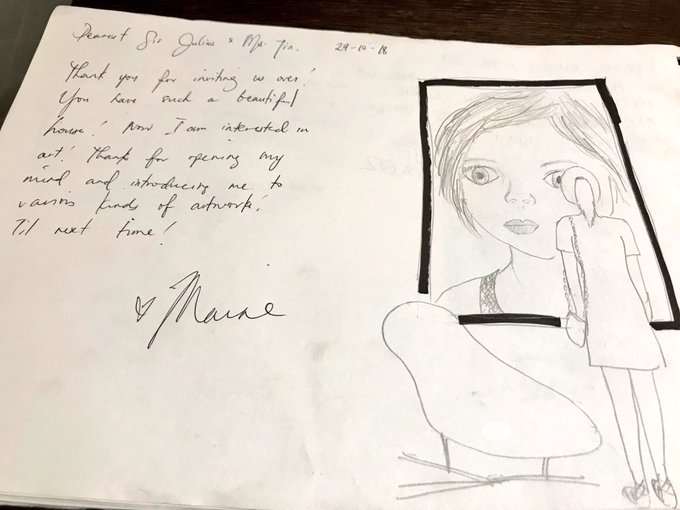 Dearest Sir Julius & Ms. Tin. 29-10-18
Thank you for inviting us over!
You have such a beautiful
house! Now I am interested in
art! Thanks for opening my
mind and introducing me to
various kinds of artworks!
Til next time!
Maine